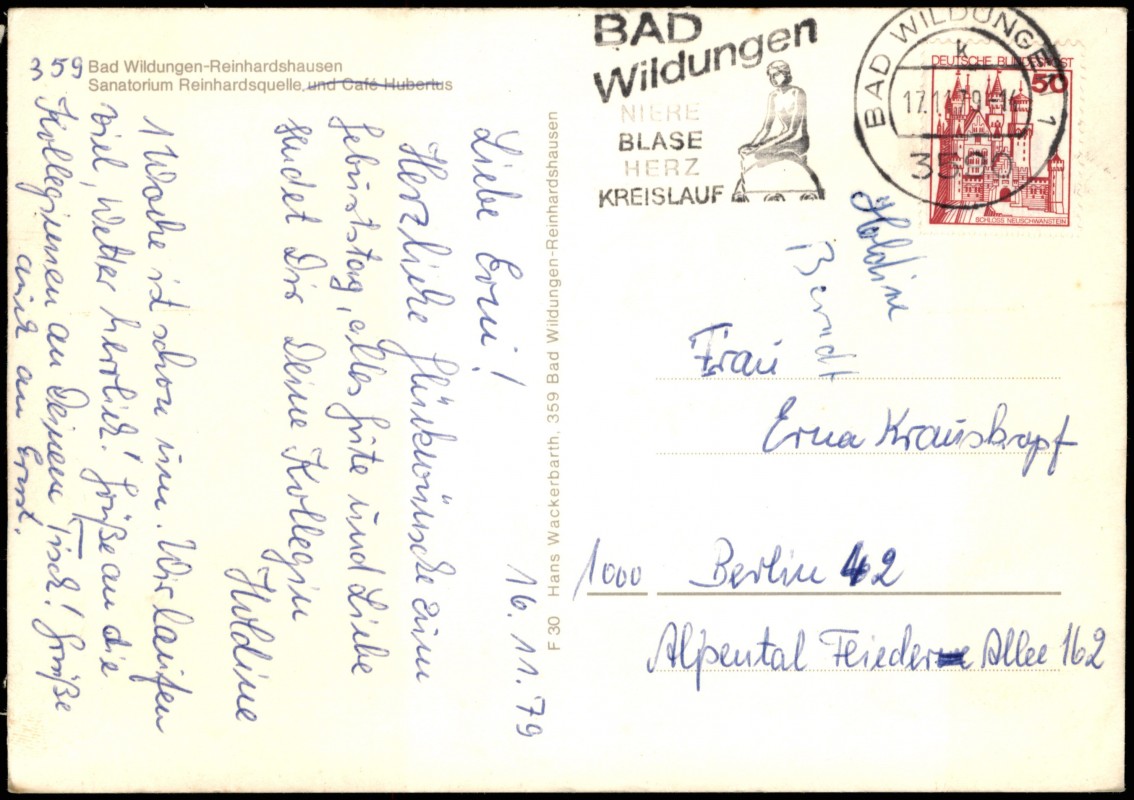 359 Bad Wildungen-Reinhardshausen
Sanatorium Reinhardsquelle, und Café Hubertus
16.11.79
Liebe Erni!
Herzliche Glückwünsche zum
Geburtstag, alles Gute und Liebe
sendet Dir Deine Kollegin
Holdine
1 Woche ist schon um. Wir laufen
viel, Wetter herrlich! Grüße an die
Kolleginnen an Deinem Tisch! Grüße
auch an Ernst.
F 30 Hans Wackerbarth, 359 Bad Wildungen-Reinhardshausen
BAD
Wildungen
NIERE
BLASE
HERZ
KREISLAUF
BAD WILDUNGEN 1
k
17.11.79
3590
DEUTSCHE BUNDESPOST
50
SCHLOSS NEUSCHWANSTEIN
Holdine
Berndt
Frau
Erna Krauskopf
1000 Berlin 42
Allee 162